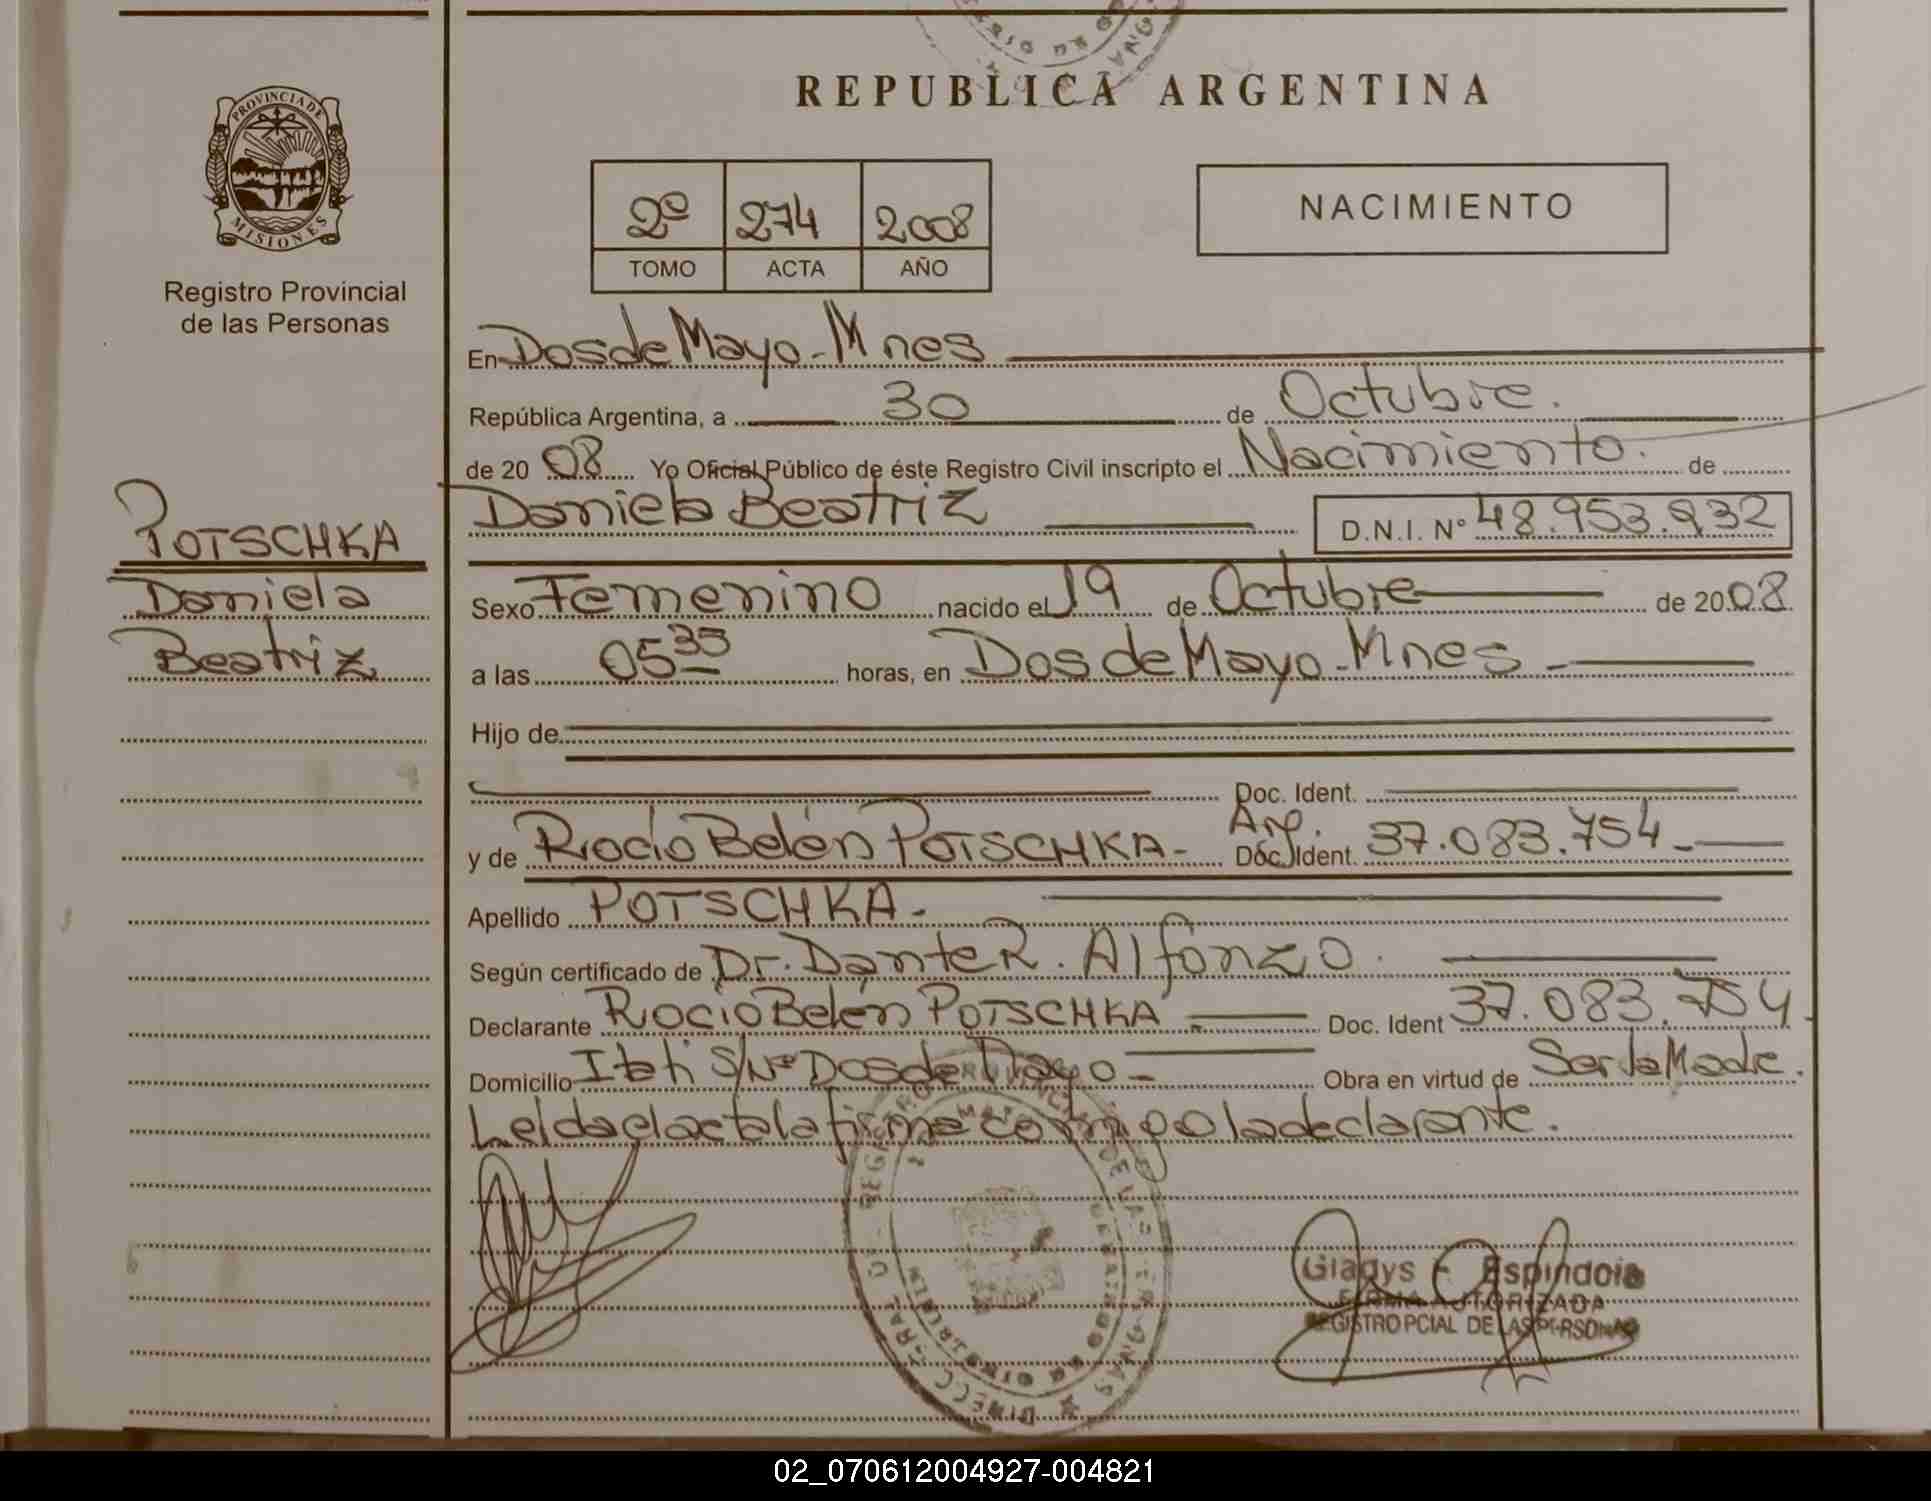 REPUBLICA ARGENTINA
PROVINCIA DE
MISIONES
Registro Provincial
de las Personas
2º 274 2008
TOMO ACTA AÑO
NACIMIENTO
En Dos de Mayo - Mnes
República Argentina, a 30 de Octubre.
de 20 08 Yo Oficial Público de éste Registro Civil inscripto el Nacimiento. de
Daniela Beatriz D.N.I. Nº 48.953.932
POTSCHKA
Daniela
Beatriz
Sexo Femenino nacido el 19 de Octubre de 20 08
a las 05 35 horas, en Dos de Mayo - Mnes -
Hijo de
Doc. Ident.
y de Rocío Belén POTSCHKA - Arg. Doc. Ident. 37.083.754 -
Apellido POTSCHKA -
Según certificado de Dr. Dante R. Alfonzo.
Declarante Rocío Belén POTSCHKA Doc. Ident 37.083.754
Domicilio Itatí S/Nº Dos de Mayo - Obra en virtud de Ser la Madre.
Leída el acta la firma conmigo la declarante.
Gladys F. Espindola
FIRMA AUTORIZADA
REGISTRO PCIAL DE LAS PERSONAS
02_070612004927-004821